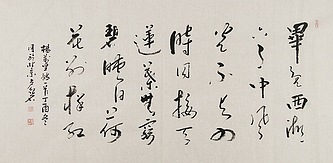 畢竟西湖
六月中風
光不與四
時同接天
蓮葉無窮
碧映日荷
花別樣紅
楊萬里詩一首丁酉冬